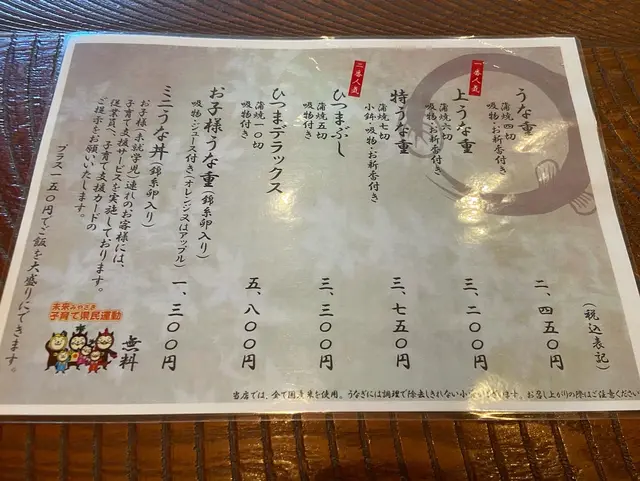 (税込表記)
うな重
蒲焼四切
吸物・お新香付き
二、四五〇円
一番人気
上うな重
蒲焼六切
吸物・お新香付き
三、二〇〇円
特うな重
蒲焼七切
小鉢・吸物・お新香付き
三、七五〇円
二番人気
ひつまぶし
蒲焼五切
吸物付き
三、三〇〇円
ひつまデラックス
蒲焼一〇切
吸物付き
五、八〇〇円
お子様うな重(錦糸卵入り)
吸物・ジュース付き(オレンジ又はアップル)
一、三〇〇円
ミニうな丼(錦糸卵入り)
無料
お子様(未就学児)連れのお客様には、
子育て支援サービスを実施しております。
従業員へ、子育て支援カードの
ご提示をお願いいたします。
プラス一五〇円でご飯を大盛りにできます。
未来みやざき
子育て県民運動
当店では、全て国産米を使用。うなぎには調理で除去しきれない小
ます。お召し上がりの際はご注意ください